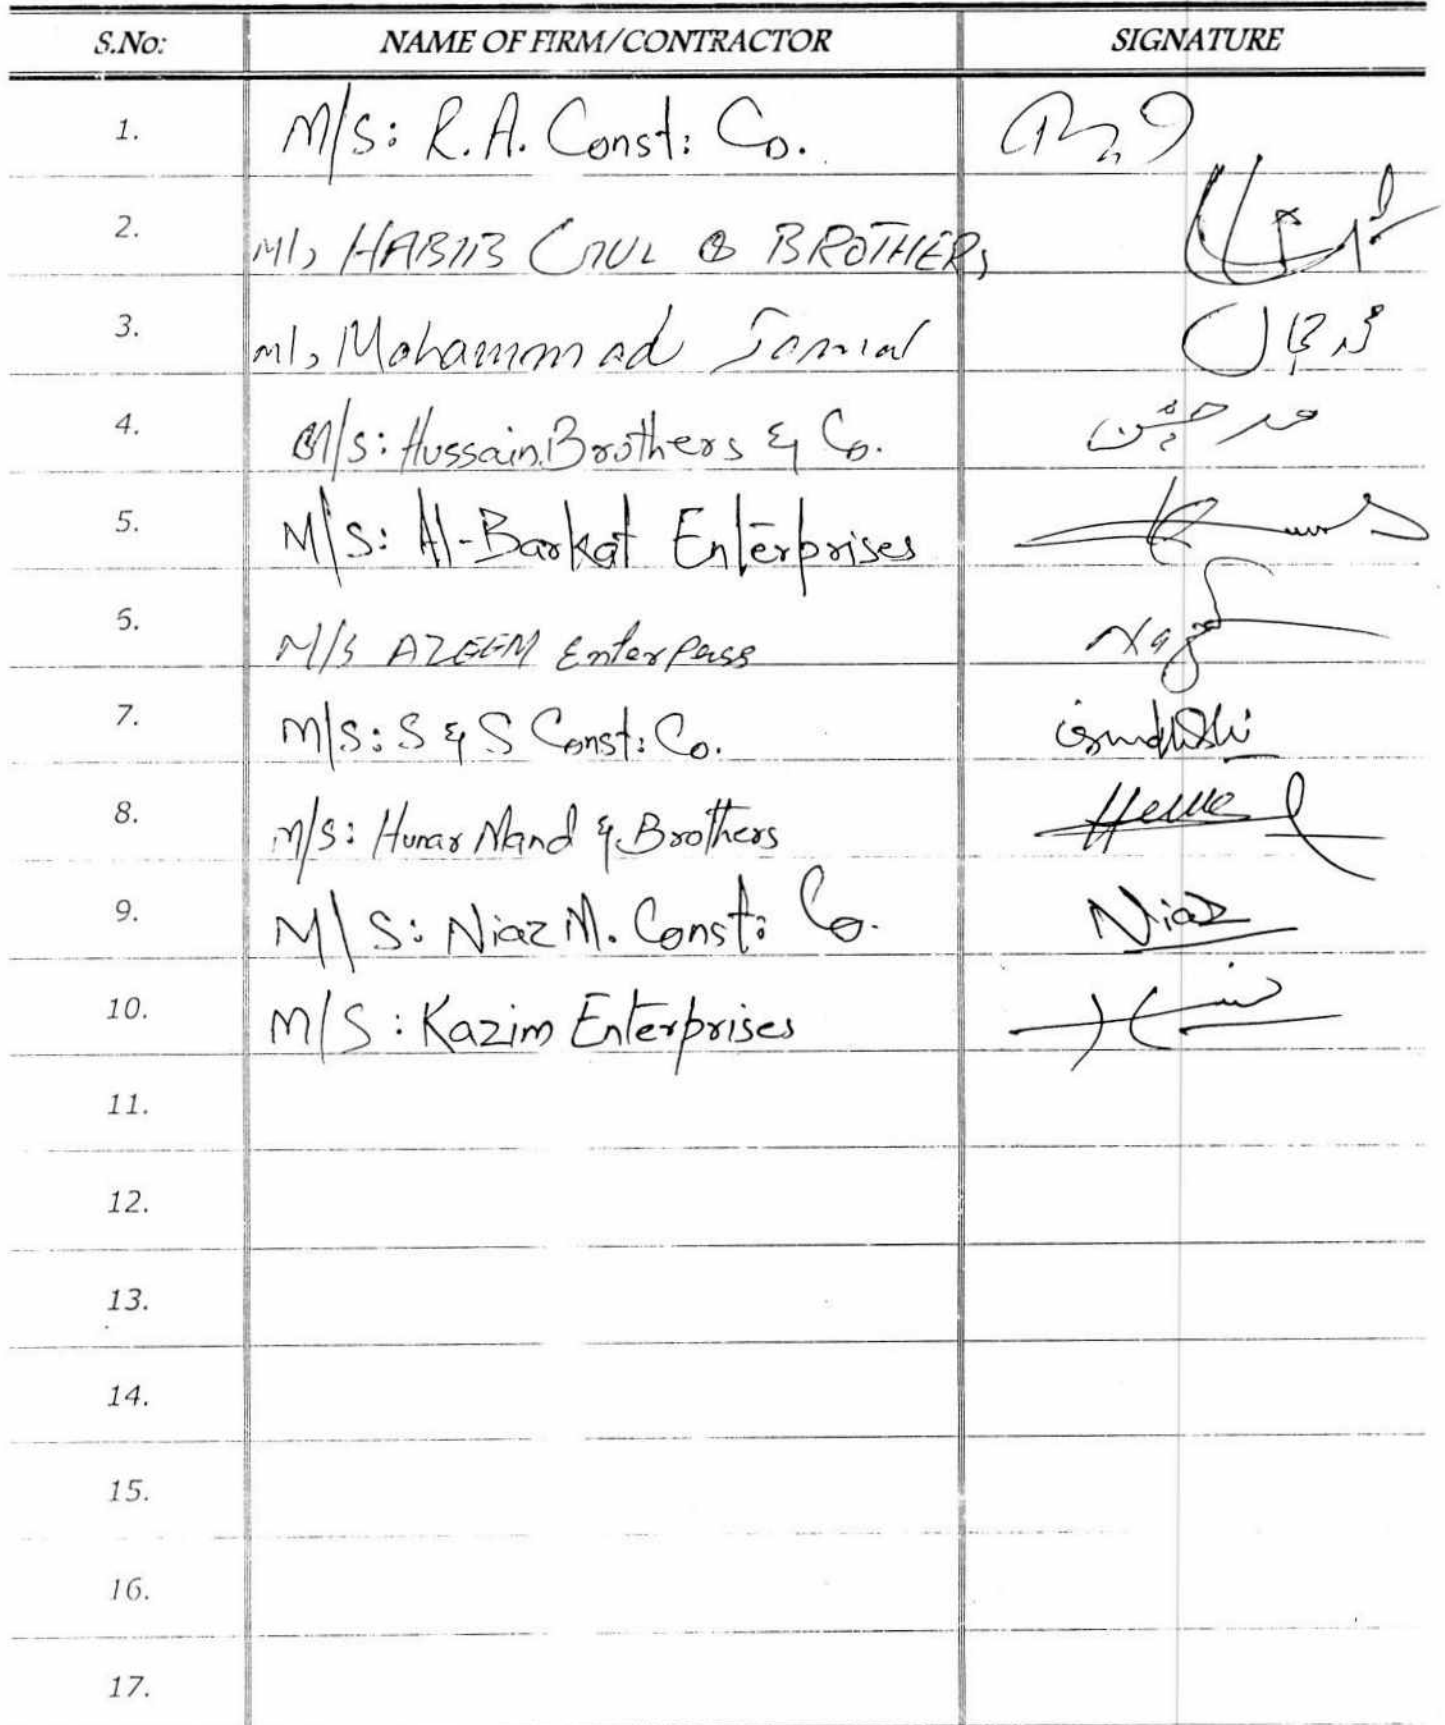 S.No: NAME OF FIRM/CONTRACTOR SIGNATURE
1. M/S: R.A. Const: Co.
2. M/s HABIB GUL & BROTHERS
3. M/s Mohammad Jamal محمد جمال
4. M/S: Hussain Brothers & Co.
5. M/S: Al-Barkat Enterprises
6. M/S AZEEM Enterpess
7. M/S: S & S Const: Co.
8. M/S: Hunar Mand & Brothers
9. M/S: Niaz M. Const: Co. Niaz
10. M/S: Kazim Enterprises
11.
12.
13.
14.
15.
16.
17.